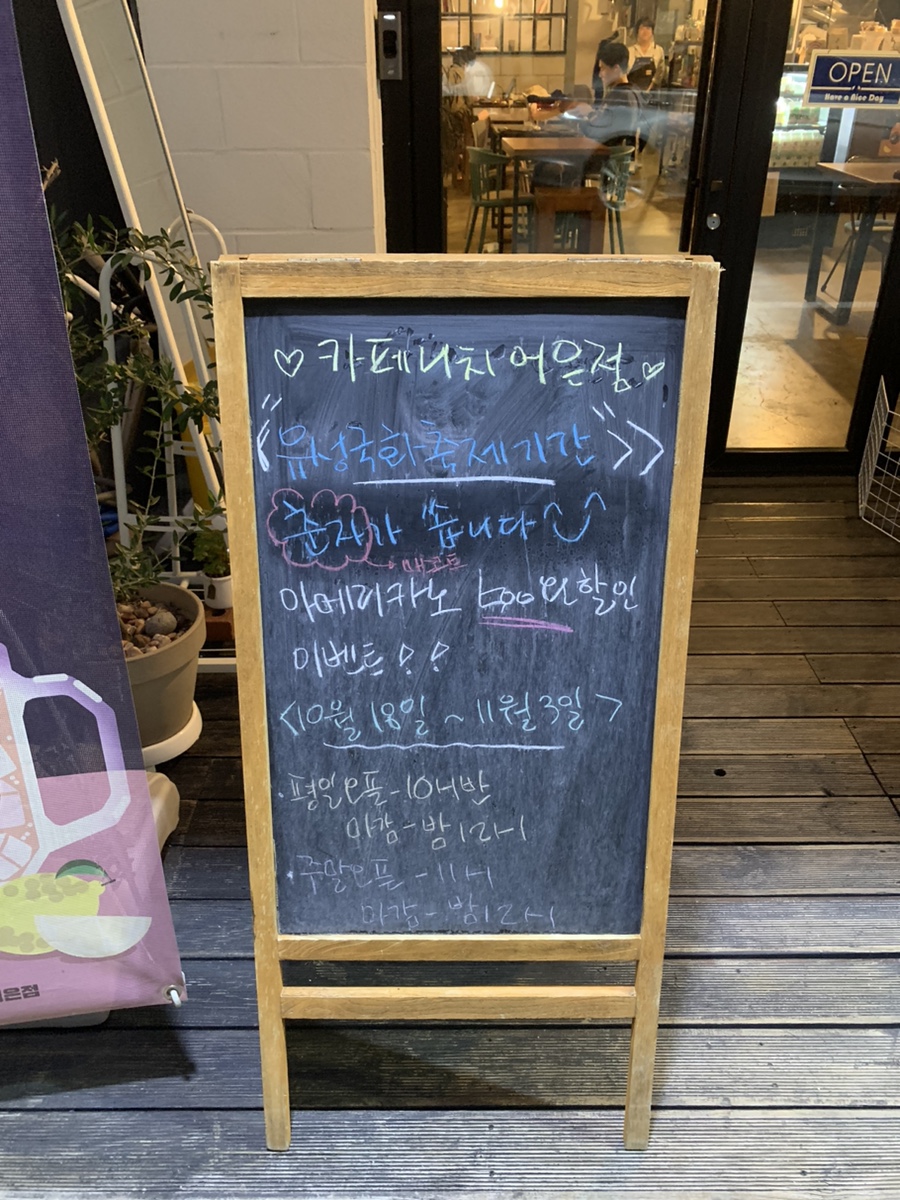 OPEN
Have a Nice Day
♡ 카페니치 어은점 ♡
유성국화축제기간 >>
춘자가 쏩니다
아메리카노 500원 할인
이벤트!!
<10월 18일 ~ 11월 3일>
·평일오픈-10시반
마감-밤12시
·주말오픈-11시
마감-밤12시
은점